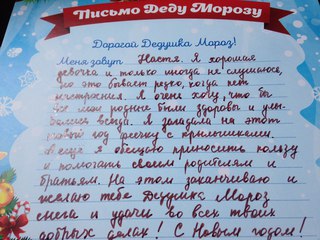 Письмо Деду Морозу
Дорогой Дедушка Мороз!
Меня зовут Настя. Я хорошая
девочка и только иногда не слушаюсь,
но это бывает редко, когда нет
настроения. Я очень хочу, что бы
все мои родные были здоровы и улы-
бались всегда. Я загадала на этот
новый год с крылышками.
А ещё я обещаю приносить пользу
и помогать своим родителям и
братьям. На этом заканчиваю и
желаю тебе Дедушка Мороз
снега и удачи во всех твоих
добрых делах! С Новым годом!